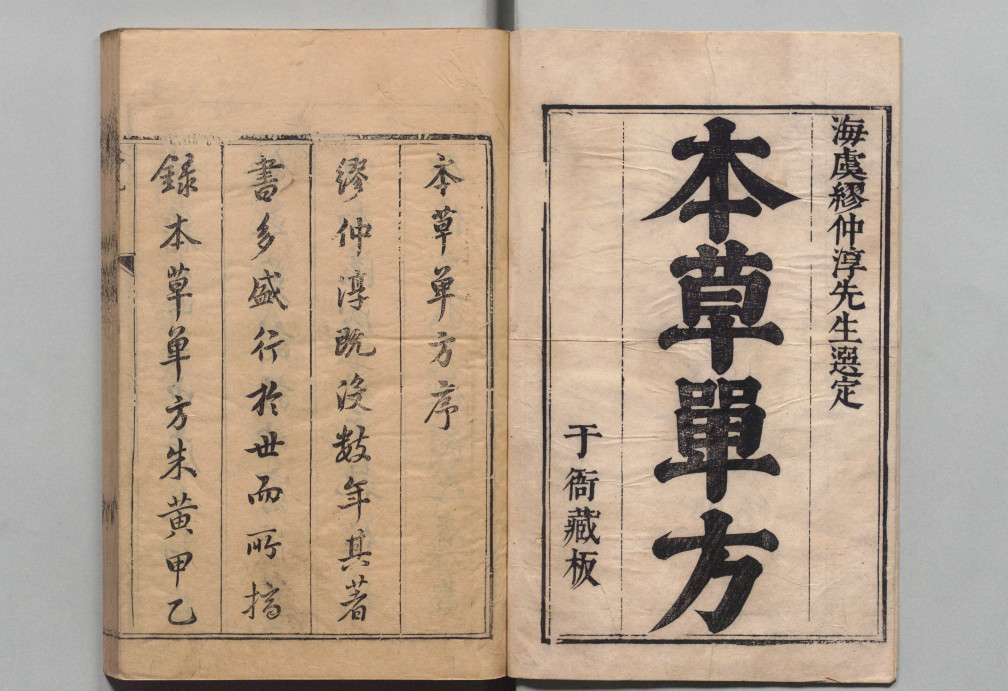 海虞繆仲淳先生選定
本草單方
于衙藏板
本草單方序
繆仲淳既沒數年其著
書多盛行於世而所摘
錄本草單方朱黃甲乙